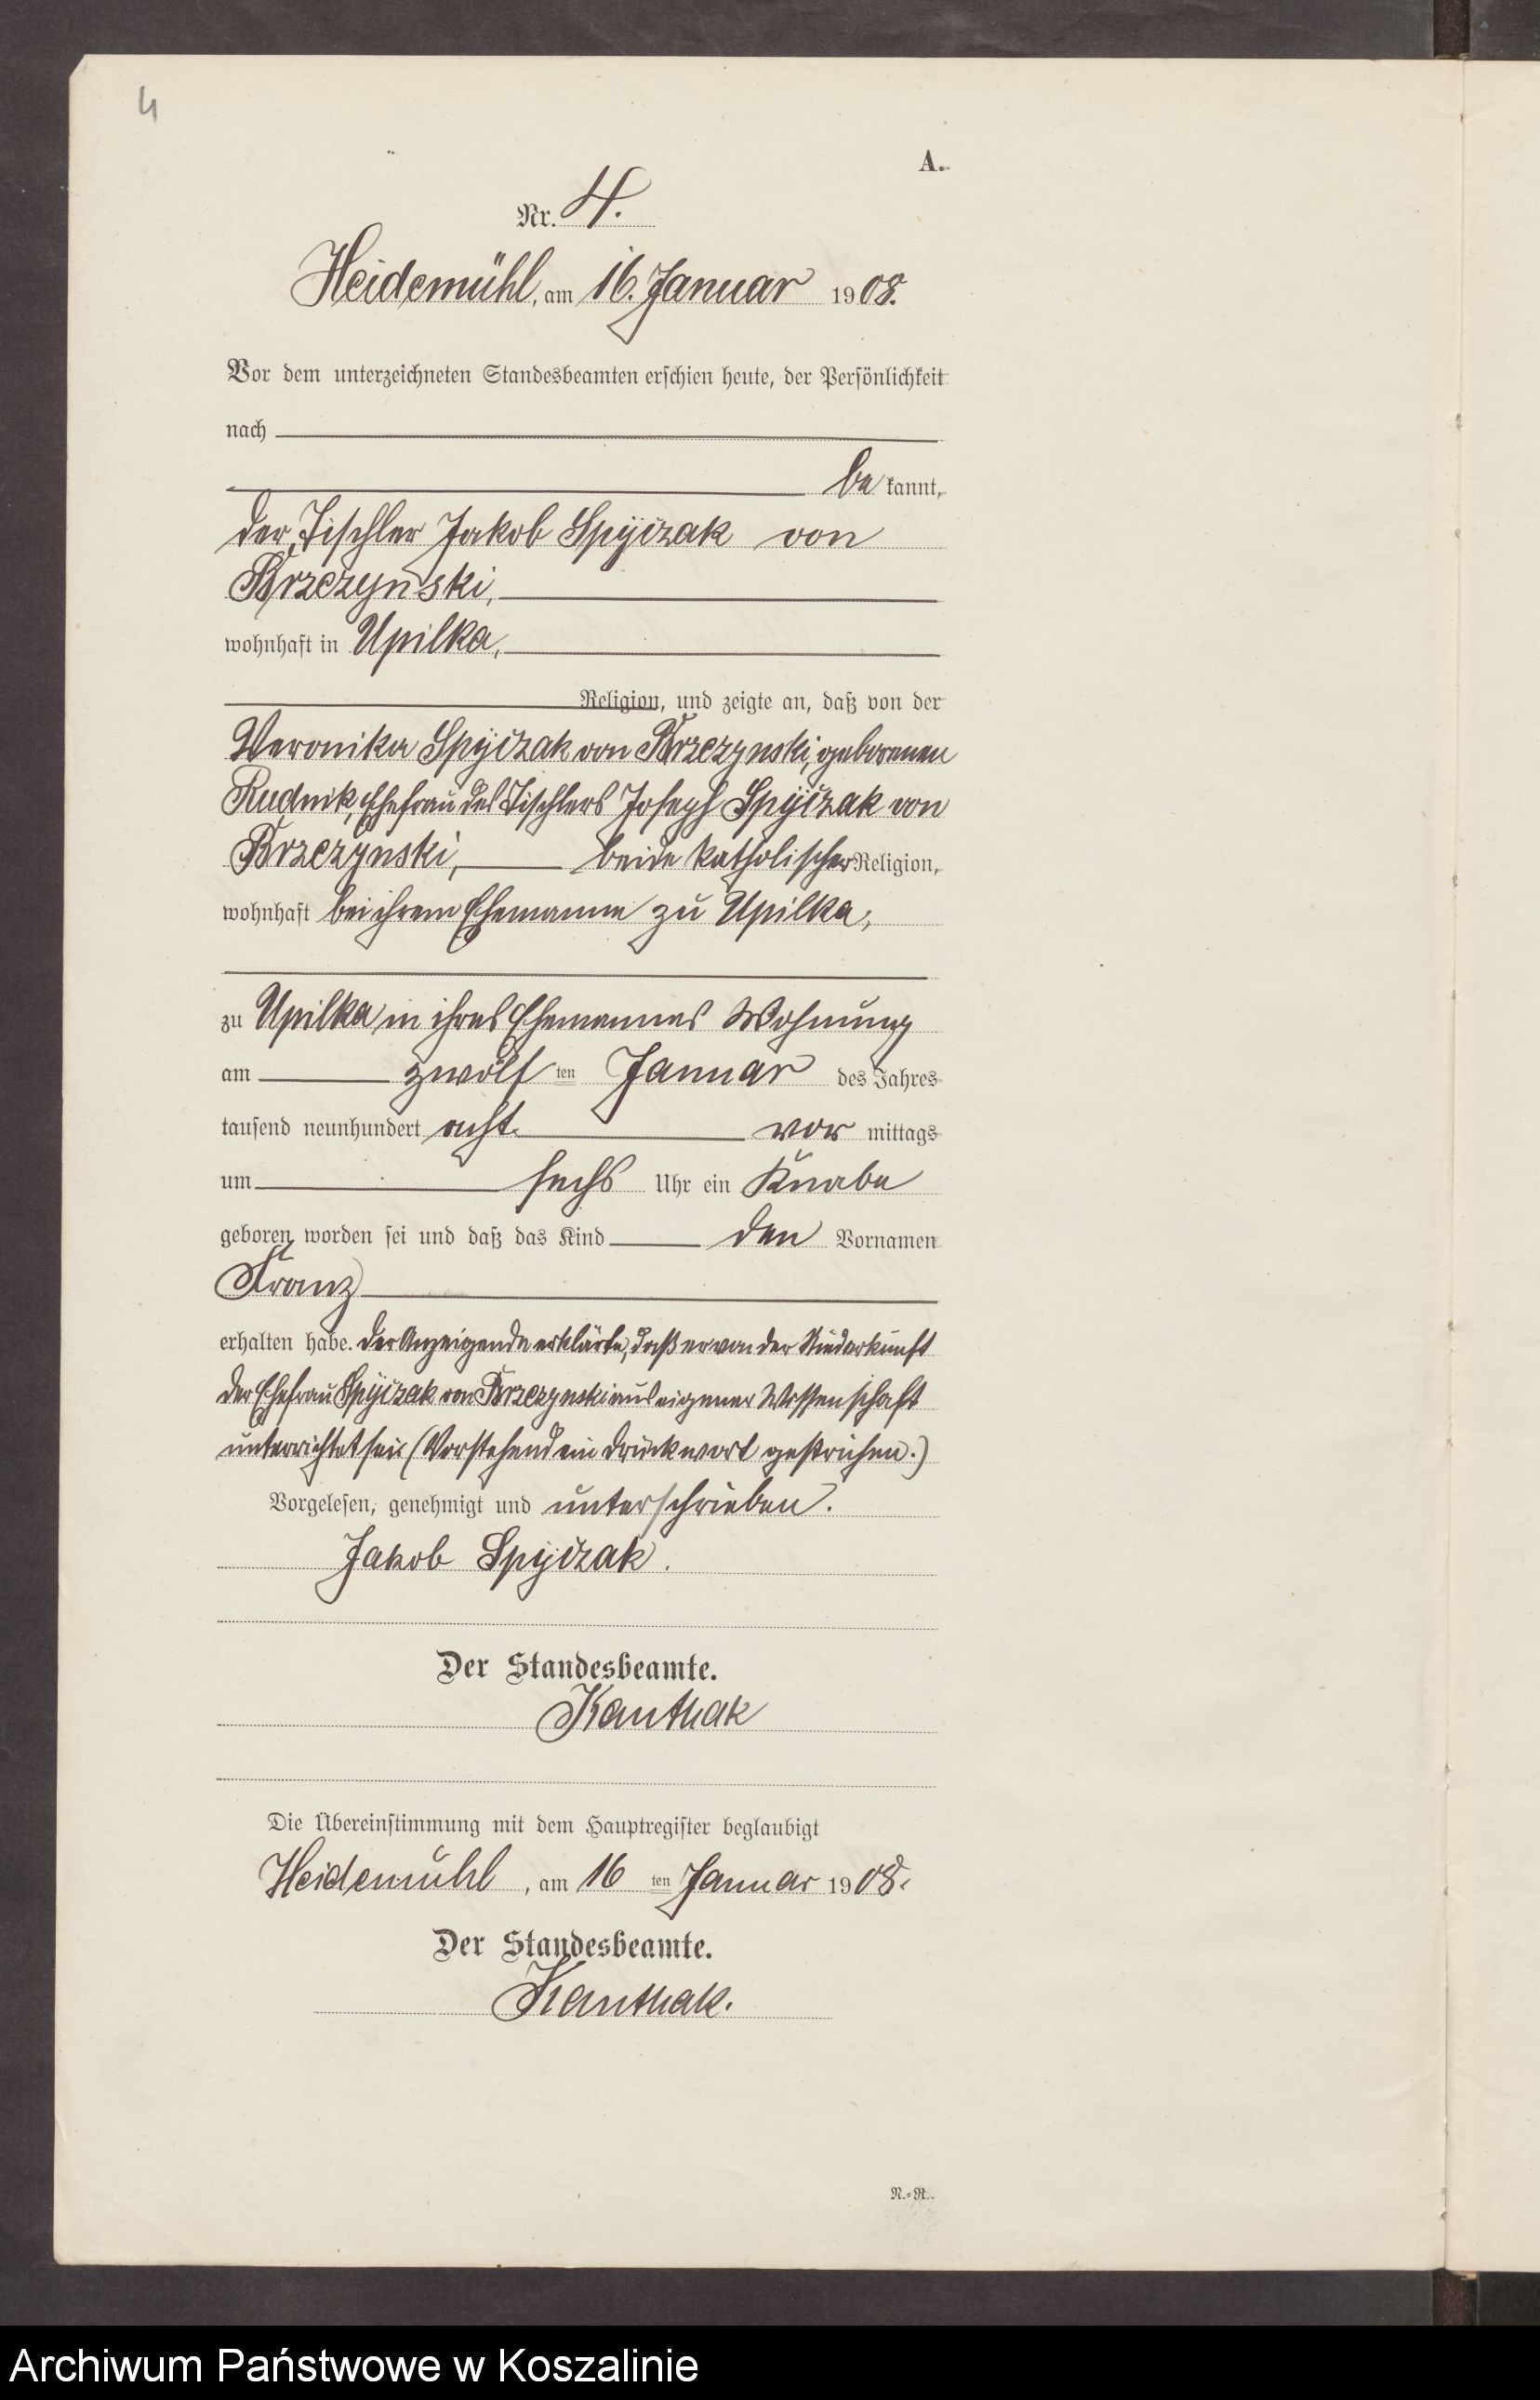 4
A.
Nr. 4.
Heidemühl, am 16. Januar 1908.
Vor dem unterzeichneten Standesbeamten erschien heute, der Persönlichkeit
nach
be kannt,
der Tischler Jakob Spyiczak von
Brzezynski,
wohnhaft in Upilka,
Religion, und zeigte an, daß von der
Veronika Spyiczak von Brzezynski, geborenen
Rudnik, Ehefrau des Tischlers Joseph Spyiczak von
Brzezynski, beide katholischer Religion,
wohnhaft bei ihrem Ehemanne zu Upilka,
zu Upilka in ihres Ehemannes Wohnung
am zwölf ten Januar des Jahres
tausend neunhundert acht vor mittags
um sechs Uhr ein Knabe
geboren worden sei und daß das Kind den Vornamen
Franz
erhalten habe. Der Anzeigende erklärte, daß er von der Niederkunft
der Ehefrau Spyiczak von Brzezynski aus eigener Wissenschaft
unterrichtet sei. (Vorstehend ein Druckwort gestrichen.)
Vorgelesen, genehmigt und unterschrieben.
Jakob Spyiczak.
Der Standesbeamte.
Kanthak
Die Übereinstimmung mit dem Hauptregister beglaubigt
Heidemühl, am 16 ten Januar 1908.
Der Standesbeamte.
Kanthak.
N.=R.
Archiwum Państwowe w Koszalinie